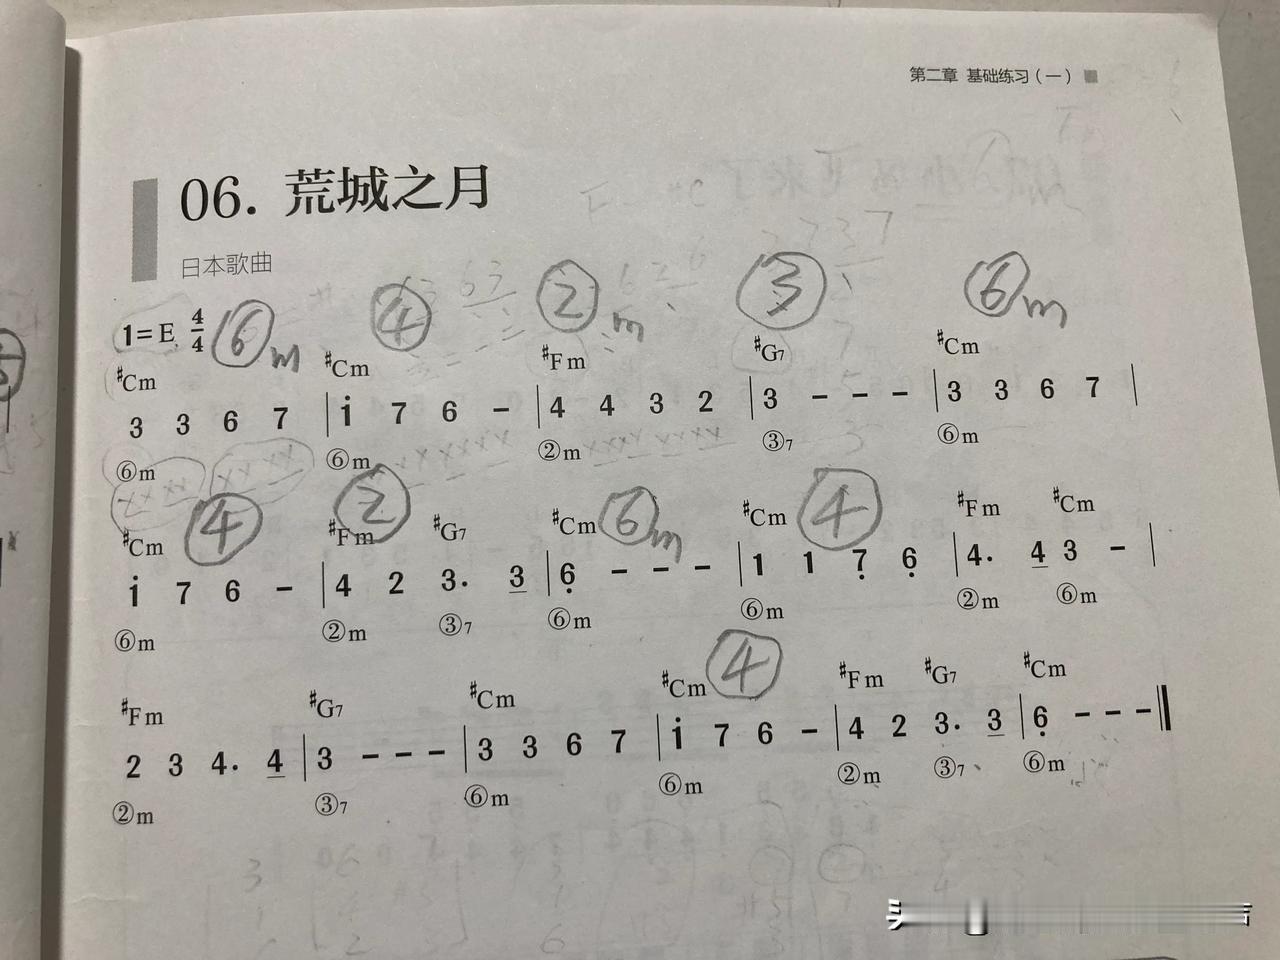 第二章 基础练习（一）
06. 荒城之月
日本歌曲
1=E 4/4 ⑥m ④ ②m ③ ⑥m
#Cm #Cm #Fm #G7 #Cm
3 3 6 7 | i 7 6 – | 4 4 3 2 | 3 – – – | 3 3 6 7 |
⑥m ⑥m ②m ③7 ⑥m
④ ② ⑥m ④
#Cm #Fm #G7 #Cm #Cm #Fm #Cm
i 7 6 – | 4 2 3. 3 | 6 – – – | 1 1 7 6 | 4. 4 3 – |
⑥m ②m ③7 ⑥m ⑥m ②m ⑥m
④
#Fm #G7 #Cm #Cm #Fm #G7 #Cm
2 3 4. 4 | 3 – – – | 3 3 6 7 | i 7 6 – | 4 2 3. 3 | 6 – – – ‖
②m ③7 ⑥m ⑥m ②m ③7 ⑥m